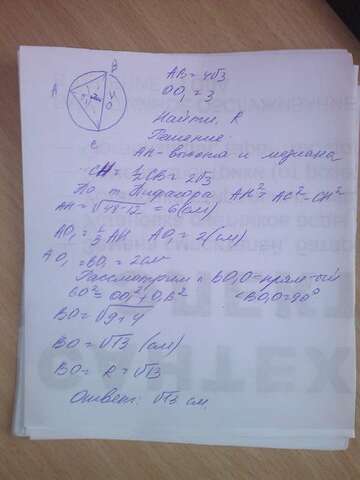 B
A
C
AB = 4√3
OO₁ = 3
Найти: R
Решение:
AH - высота и медиана
CH = ½ CB = 2√3
По т. Пифагора AH² = AC² - CH²
AH = √48-12 = 6 (см)
AO₁ = ⅓ AH AO₁ = 2 (см)
AO₁ = BO₁ = 2 см
Рассмотрим BO₁O - прям-ый
BO² = OO₁² + O₁B² <BO₁O = 90°
BO = √9+4
BO = √13 (см)
BO = R = √13
Ответ: √13 см.